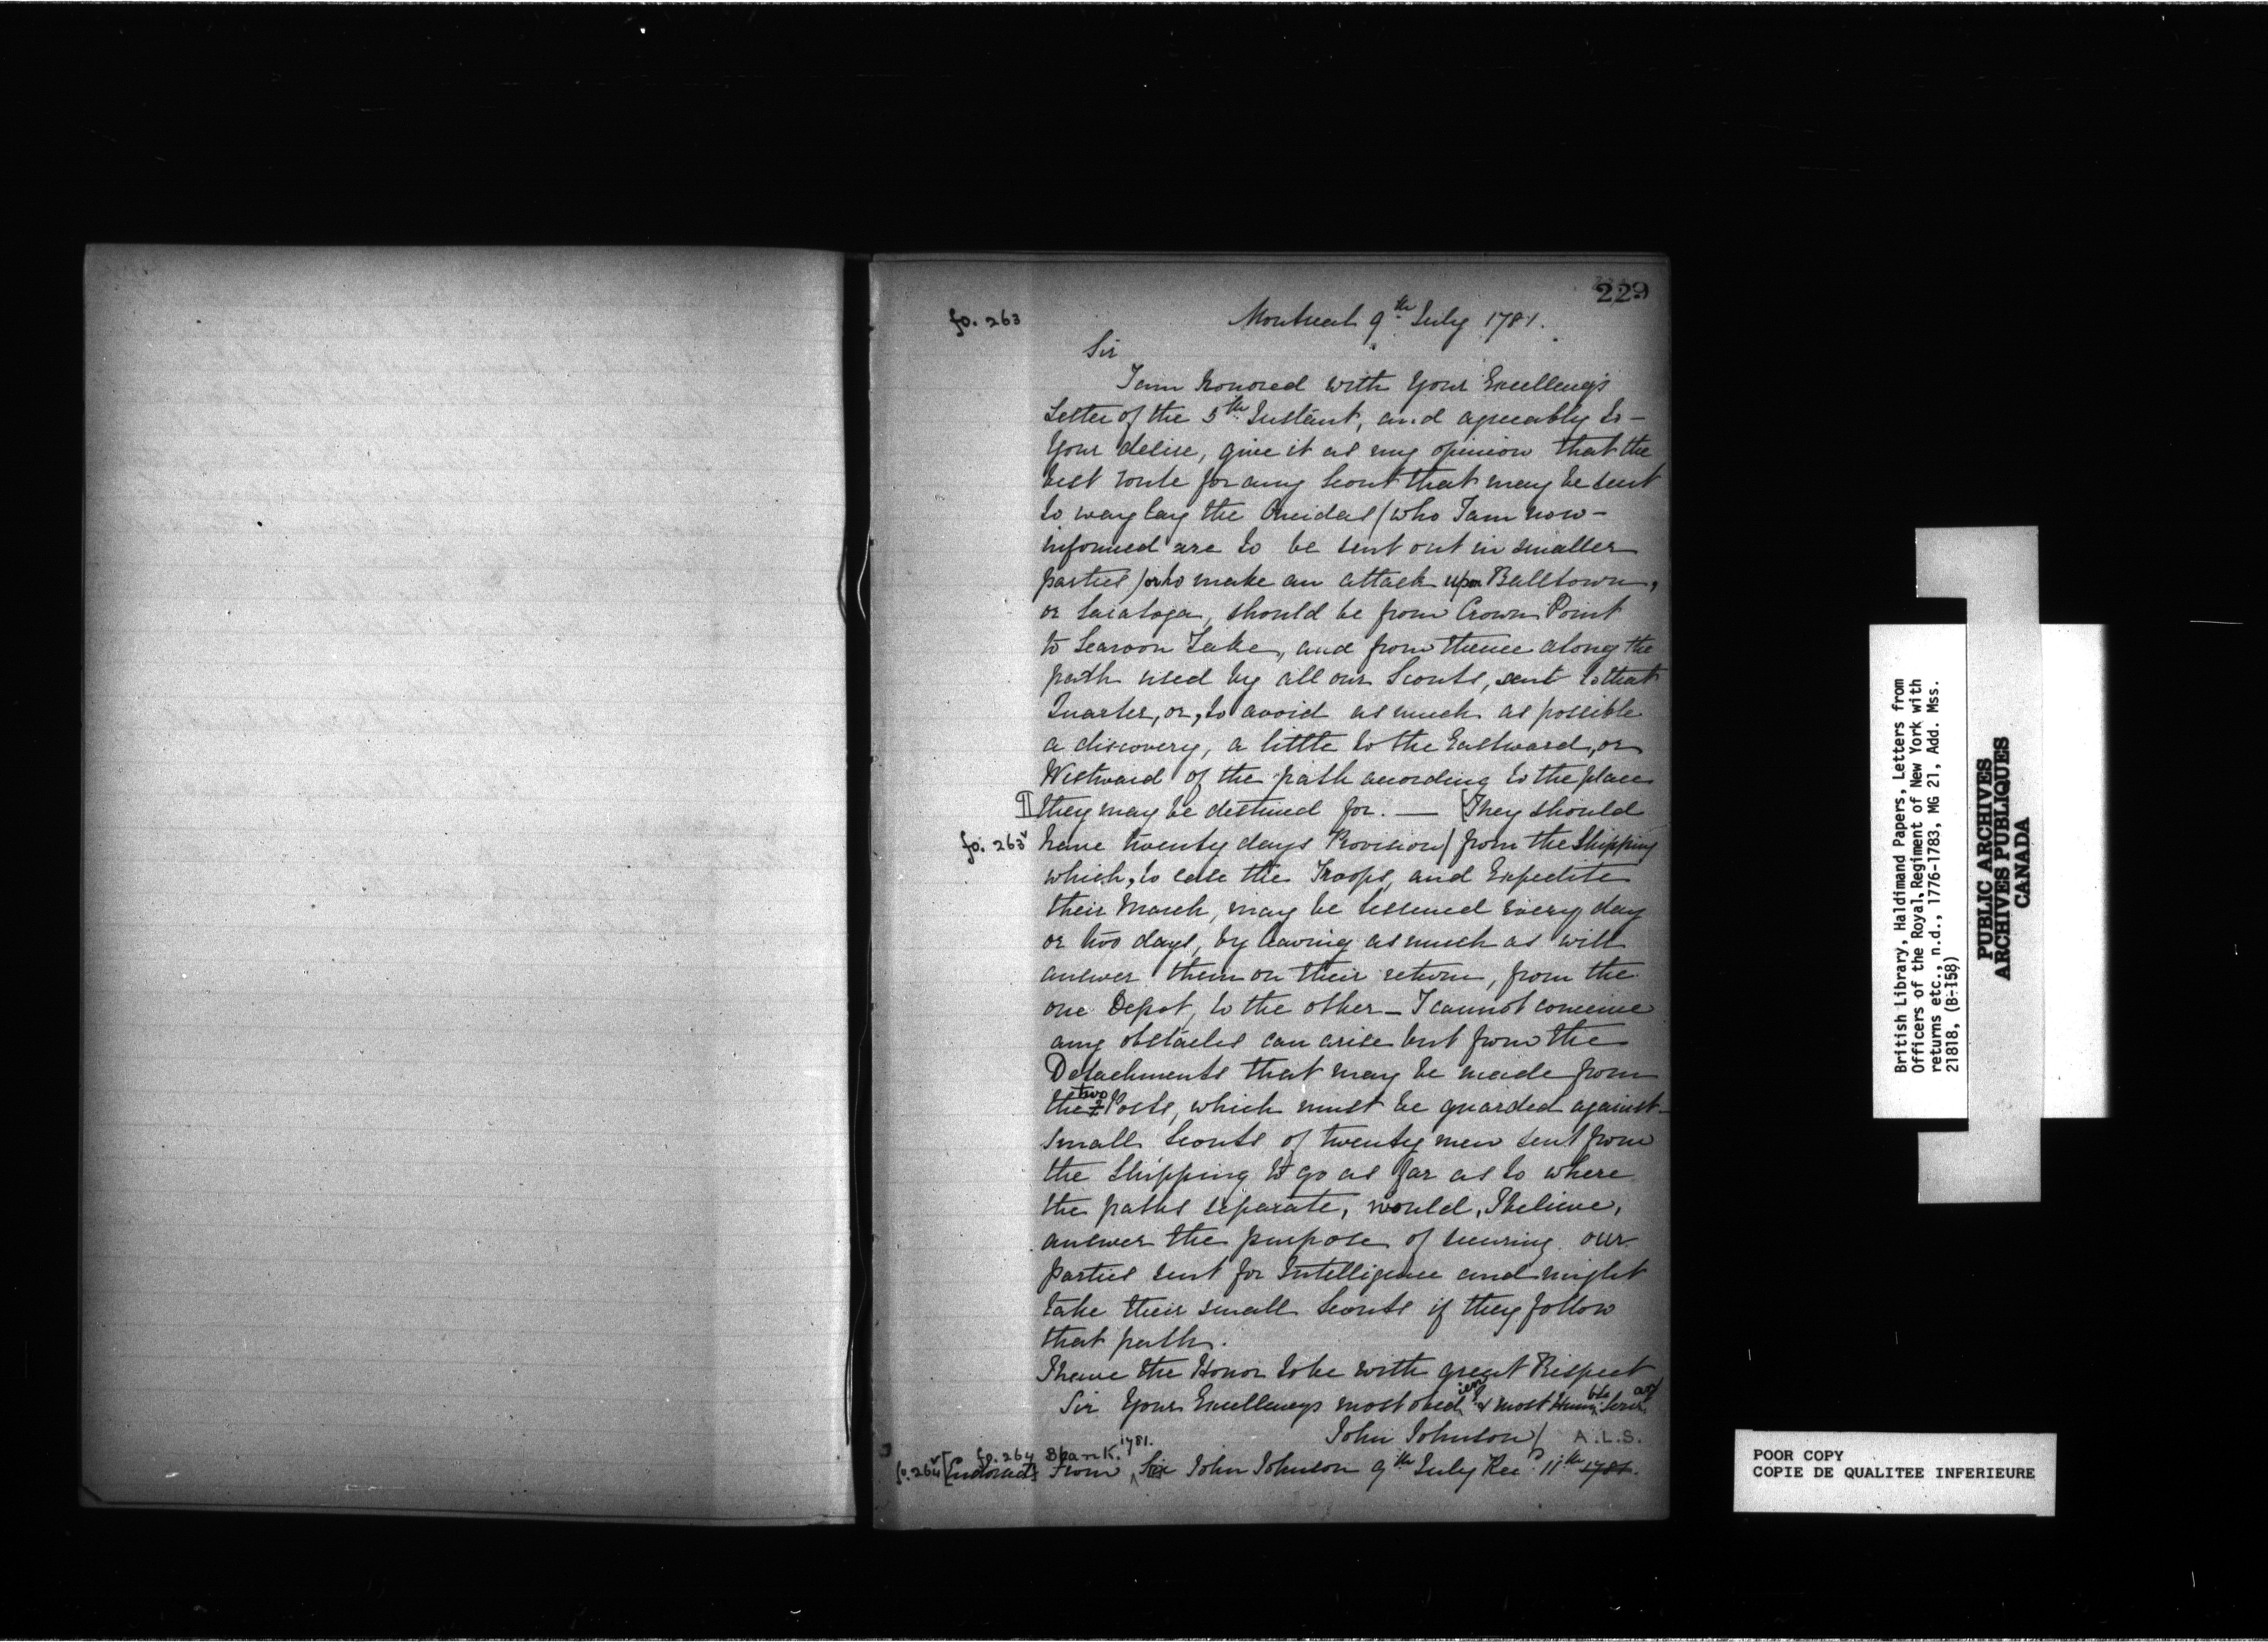 229
fo. 263
Montreal 9th July 1781.
Sir
I am honored with Your Excellency's
Letter of the 5th Instant, and agreeably to –
Your desire, give it as my opinion that the
best route for any Scout that may be sent
to waylay the Oneidas (who I am now –
informed are to be sent out in smaller
parties) or to make an attack upon Balltown,
or Saratoga, should be from Crown Point
to Scaroon Lake, and from thence along the
path used by all our Scouts, sent to that
Quarter, or, to avoid as much as possible
a discovery, a little to the Eastward, or
Westward of the path according to the place
they may be destined for. — [They should
fo. 263v have twenty days Provision/ from the Shipping
which, to ease the Troops, and Expedite
their March, may be lessened every day
or two days, by leaving as much as will
answer them on their return, from the
one Depot, to the other – I cannot conceive
any obstacles can arise but from the
Detachments that may be made from
the two Posts, which must be guarded against –
Small Scouts of twenty men sent from
the Shipping to go as far as to where
the paths separate, would, I believe,
answer the purpose of securing our
parties sent for Intelligence and might
take their small Scouts if they follow
that path.
I have the Honor to be with great Respect
Sir Your Excellencys most obedient & most Humble Servant
John Johnson/ A.L.S.
fo. 264 Blank. 1781.
fo. 264v [Endorsed] From Sir John Johnson 9th July Recd 11th 1781.
British Library, Haldimand Papers, Letters from
Officers of the Royal Regiment of New York with
returns etc., n.d., 1776-1783, MG 21, Add. Mss.
21818, (B-158)
PUBLIC ARCHIVES
ARCHIVES PUBLIQUES
CANADA
POOR COPY
COPIE DE QUALITEE INFERIEURE